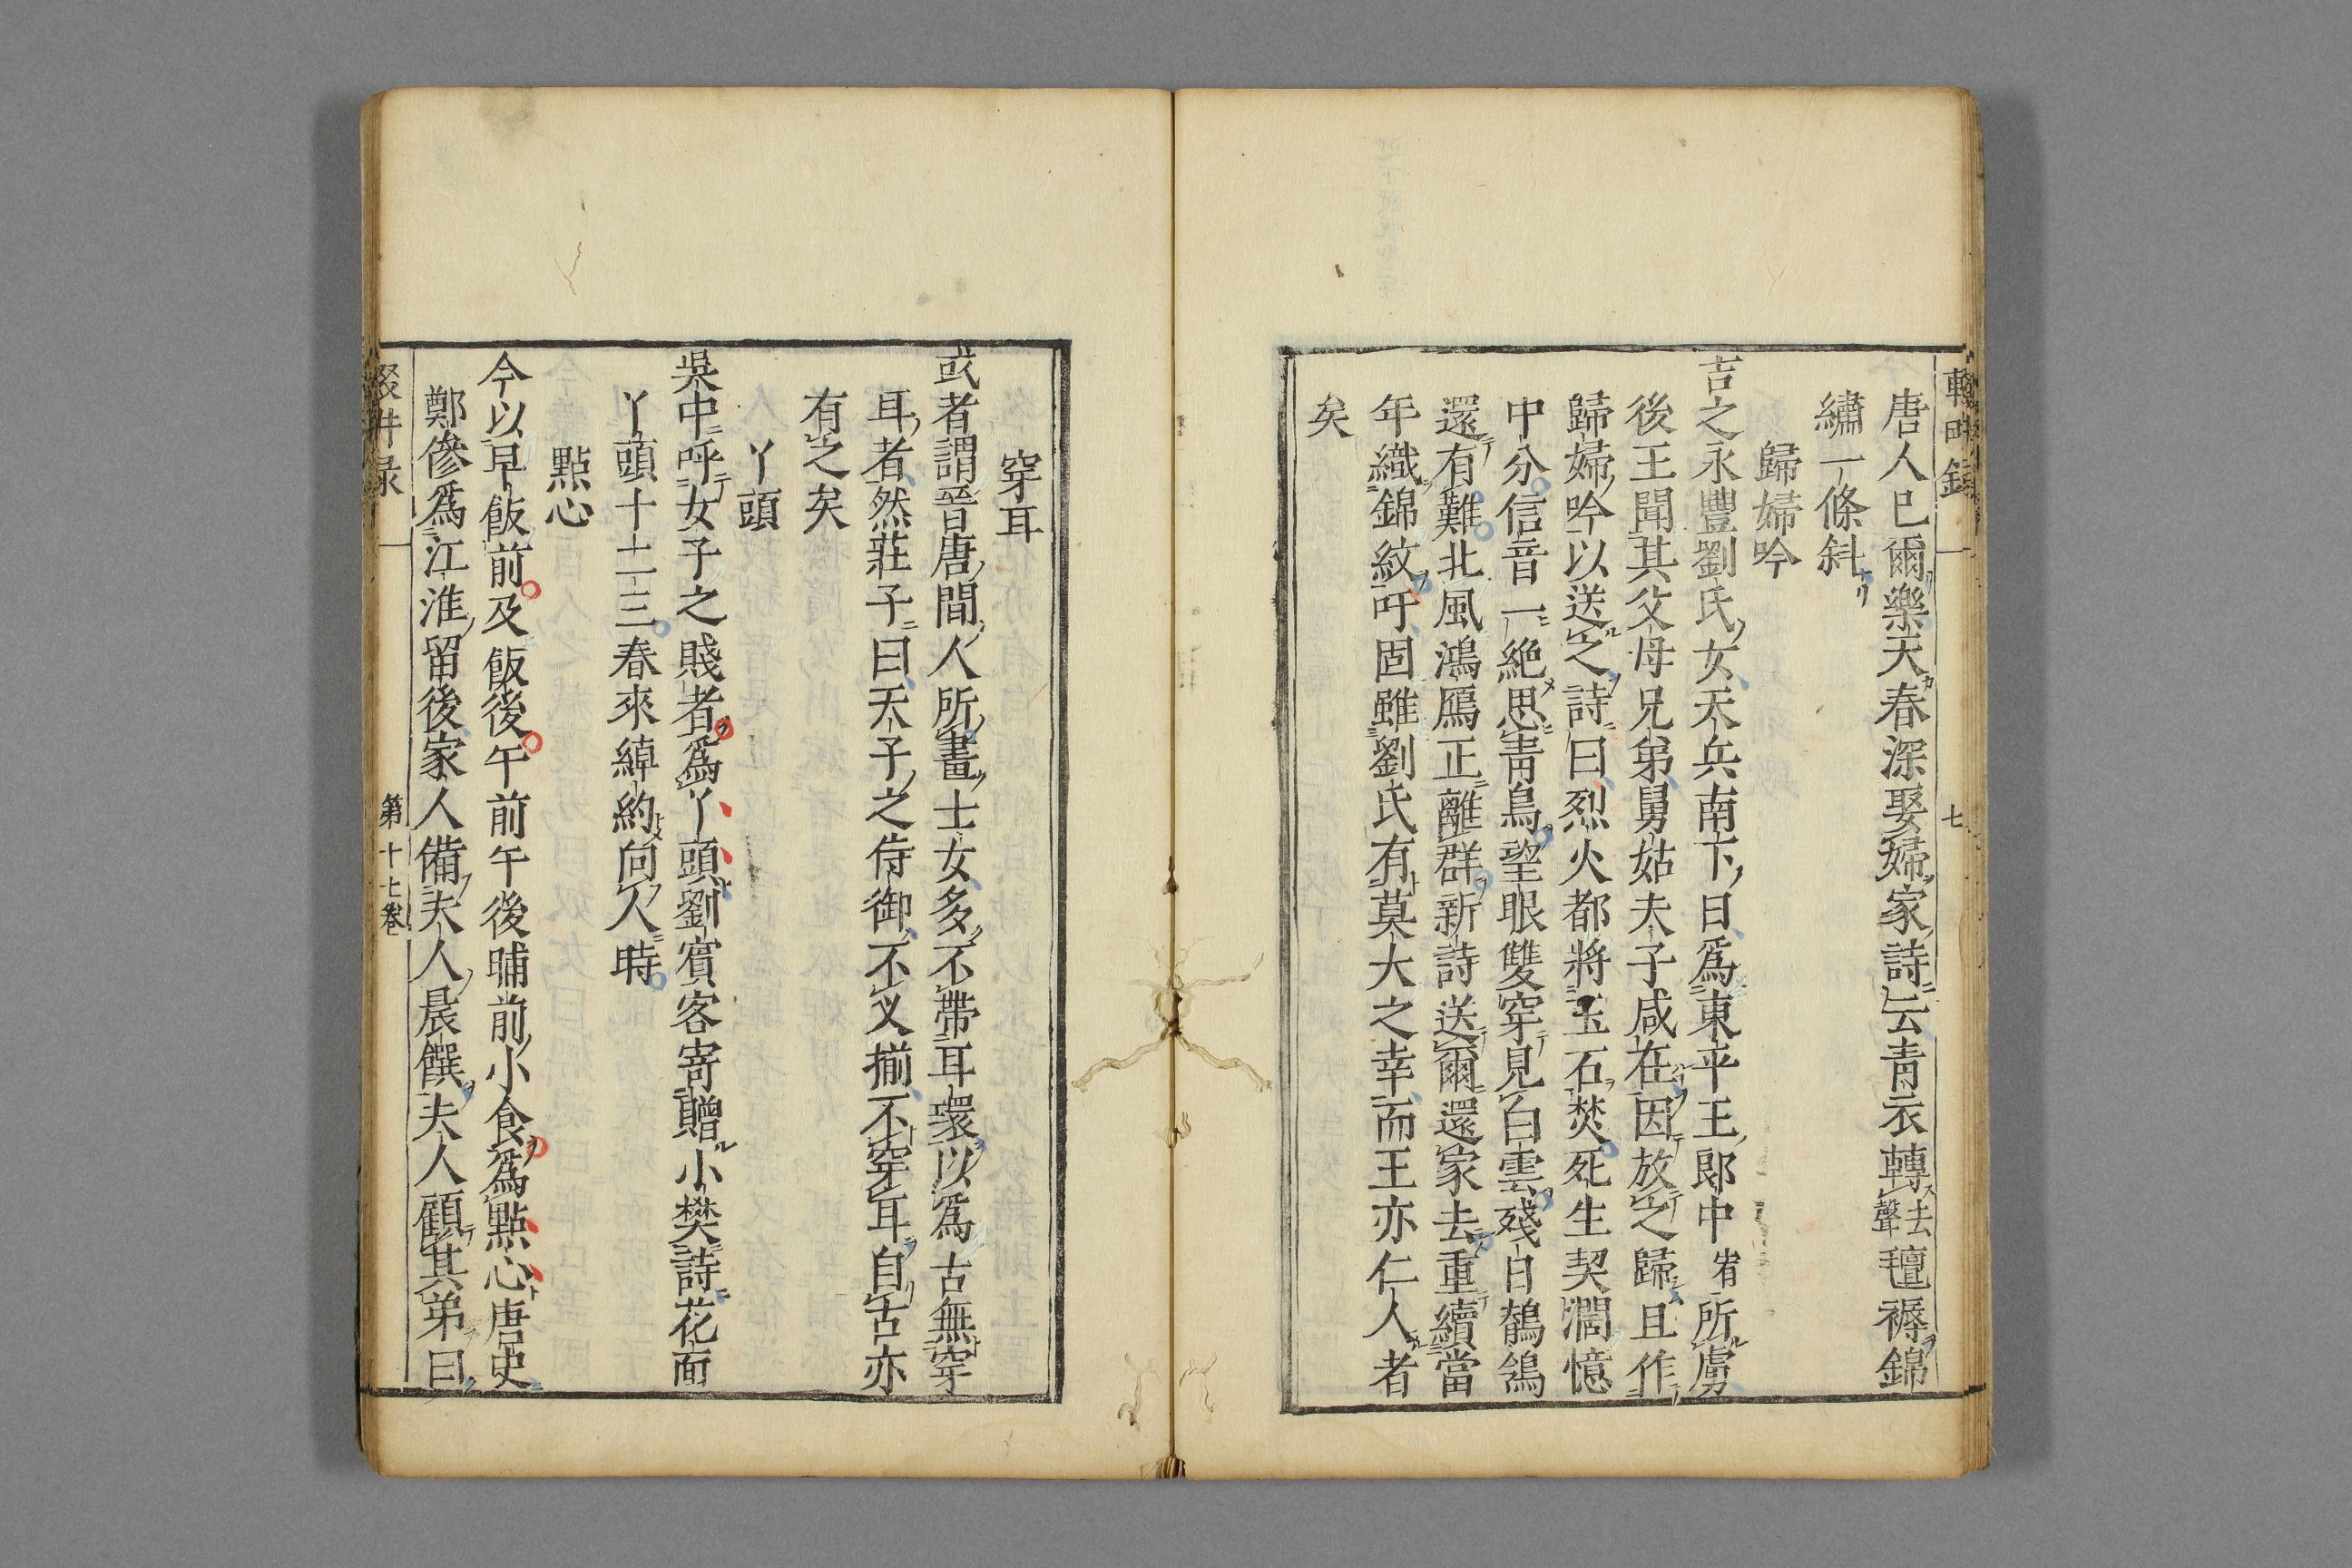 輟畊錄 七
唐人已爾樂天春深娶婦家詩云靑衣轉去聲氊褥錦
繡一條斜
歸婦吟
吉之永豐劉氏女天兵南下日爲東平王郞中所虜
後王聞其父母兄弟舅姑夫子咸在因放之歸且作
歸婦吟以送之詩曰烈火都將玉石焚死生契濶憶
中分信音一絶思靑鳥望眼雙穿見白雲殘日鶺鴒
還有難北風鴻鴈正離群新詩送爾還家去重續當
年織錦紋吁固雖劉氏有莫大之幸而王亦仁人者
矣
穿耳
或者謂晉唐間人所畫士女多不帶耳環以爲古無穿
耳者然莊子曰天子之侍御不叉揃不穿耳自古亦
有之矣
丫頭
吳中呼女子之賤者爲丫頭劉賓客寄贈小樊詩花面
丫頭十二三春來綽約向人時
點心
今以早飯前及飯後午前午後晡前小食爲點心唐史
鄭傪爲江淮留後家人備夫人晨饌夫人顧其弟曰
輟畊录 第十七卷